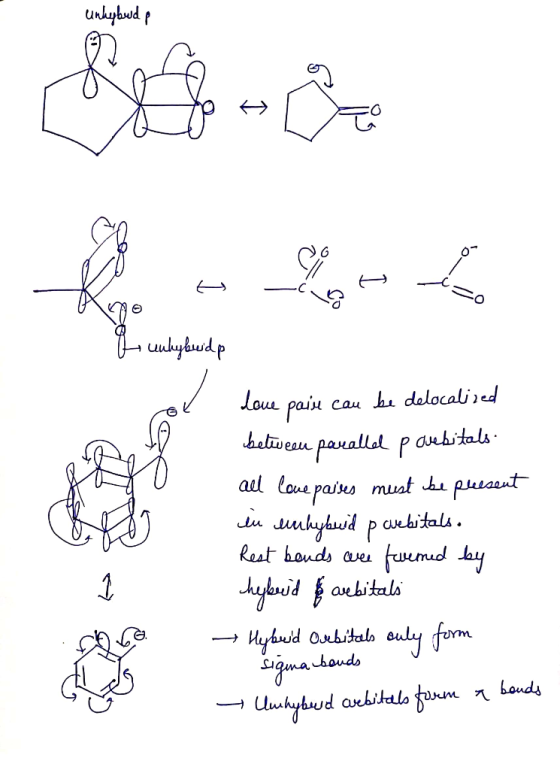 unhybrid p
O
⊖
O
⊖
unhybrid p
C
O
O
C
O⁻
O
⊖
Lone pair can be delocalised
between parallel p orbitals.
all lone paires must be present
in unhybrid p orbitals.
Rest bonds are formed by
hybrid orbitals
→ Hybrid orbitals only form
sigma bonds
→ Unhybrid orbitals form π bonds
⊖